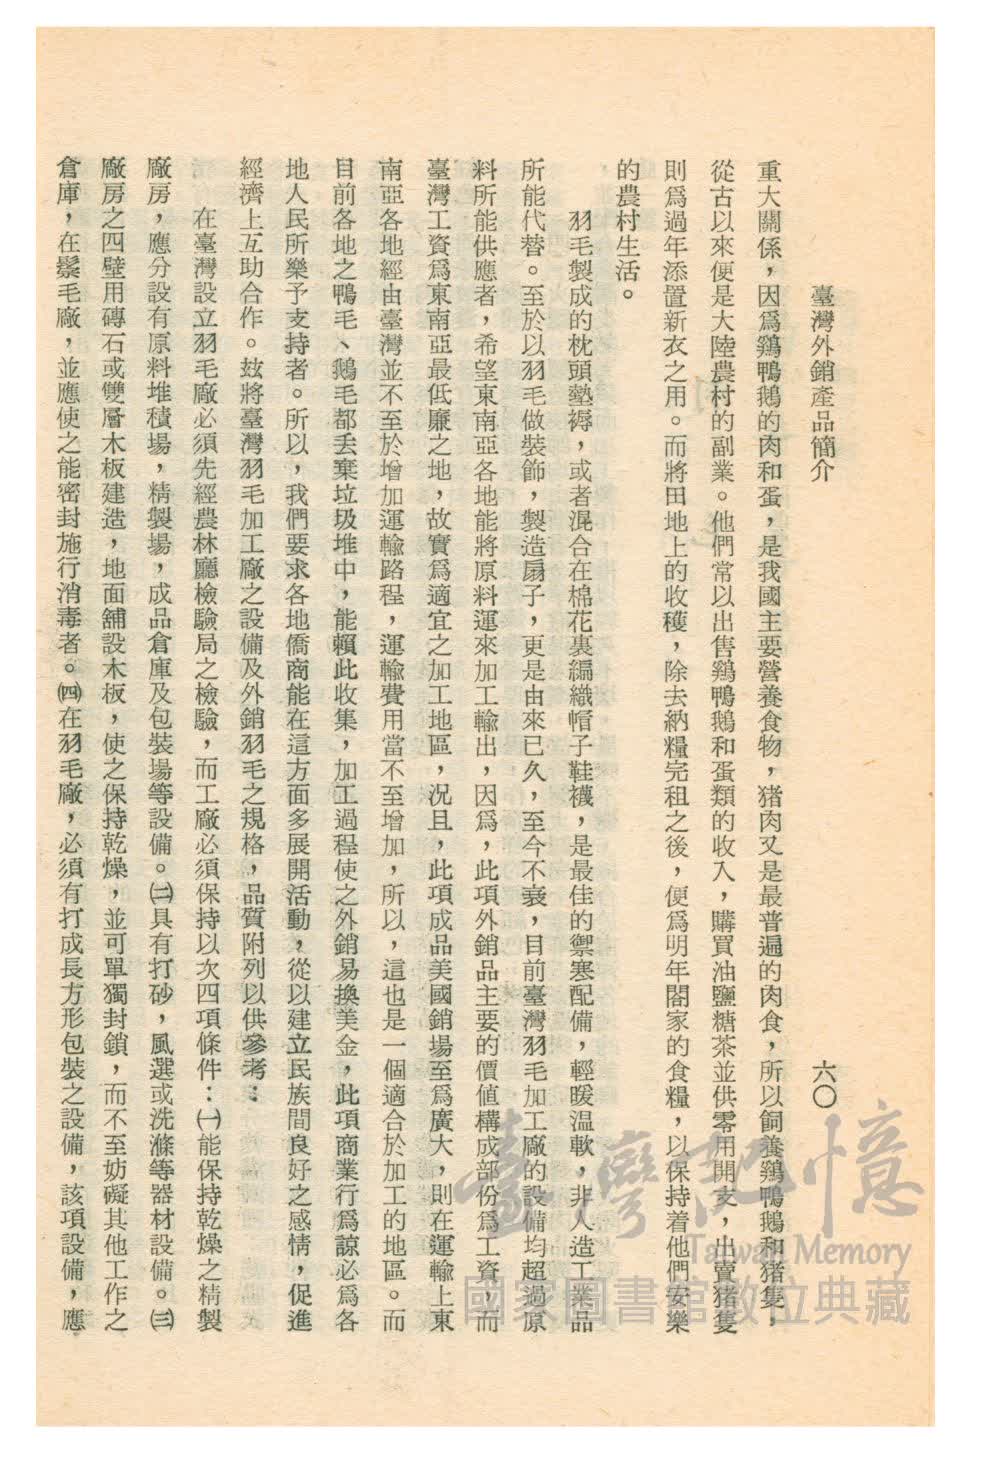 臺灣外銷產品簡介
六〇
重大關係，因爲鷄鴨鵝的肉和蛋，是我國主要營養食物，猪肉又是最普遍的肉食，所以飼養鷄鴨鵝和猪隻，
從古以來便是大陸農村的副業。他們常以出售鷄鴨鵝和蛋類的收入，購買油鹽糖茶並供零用開支，出賣猪隻
則爲過年添置新衣之用。而將田地上的收穫，除去納糧完租之後，便爲明年閤家的食糧，以保持着他們安樂
的農村生活。
羽毛製成的枕頭墊褥，或者混合在棉花裏編織帽子鞋襪，是最佳的禦寒配備，輕暖温軟，非人造工業品
所能代替。至於以羽毛做裝飾，製造扇子，更是由來已久，至今不衰，目前臺灣羽毛加工廠的設備均超過原
料所能供應者，希望東南亞各地能將原料運來加工輸出，因爲，此項外銷品主要的價値構成部份爲工資，而
臺灣工資爲東南亞最低廉之地，故實爲適宜之加工地區，況且，此項成品美國銷場至爲廣大，則在運輸上東
南亞各地經由臺灣並不至於增加運輸路程，運輸費用當不至增加，所以，這也是一個適合於加工的地區。而
目前各地之鴨毛、鵝毛都丢棄垃圾堆中，能賴此收集，加工過程使之外銷易換美金，此項商業行爲諒必爲各
地人民所樂予支持者。所以，我們要求各地僑商能在這方面多展開活動，從以建立民族間良好之感情，促進
經濟上互助合作。玆將臺灣羽毛加工廠之設備及外銷羽毛之規格，品質附列以供參考：
在臺灣設立羽毛廠必須先經農林廳檢驗局之檢驗，而工廠必須保持以次四項條件：㈠能保持乾燥之精製
廠房，應分設有原料堆積場，精製場，成品倉庫及包裝場等設備。㈡具有打砂，風選或洗滌等器材設備。㈢
廠房之四壁用磚石或雙層木板建造，地面舖設木板，使之保持乾燥，並可單獨封鎖，而不至妨礙其他工作之
倉庫，在鬃毛廠，並應使之能密封施行消毒者。㈣在羽毛廠，必須有打成長方形包裝之設備，該項設備，應
臺灣記憶
Taiwan Memory
國家圖書館數位典藏